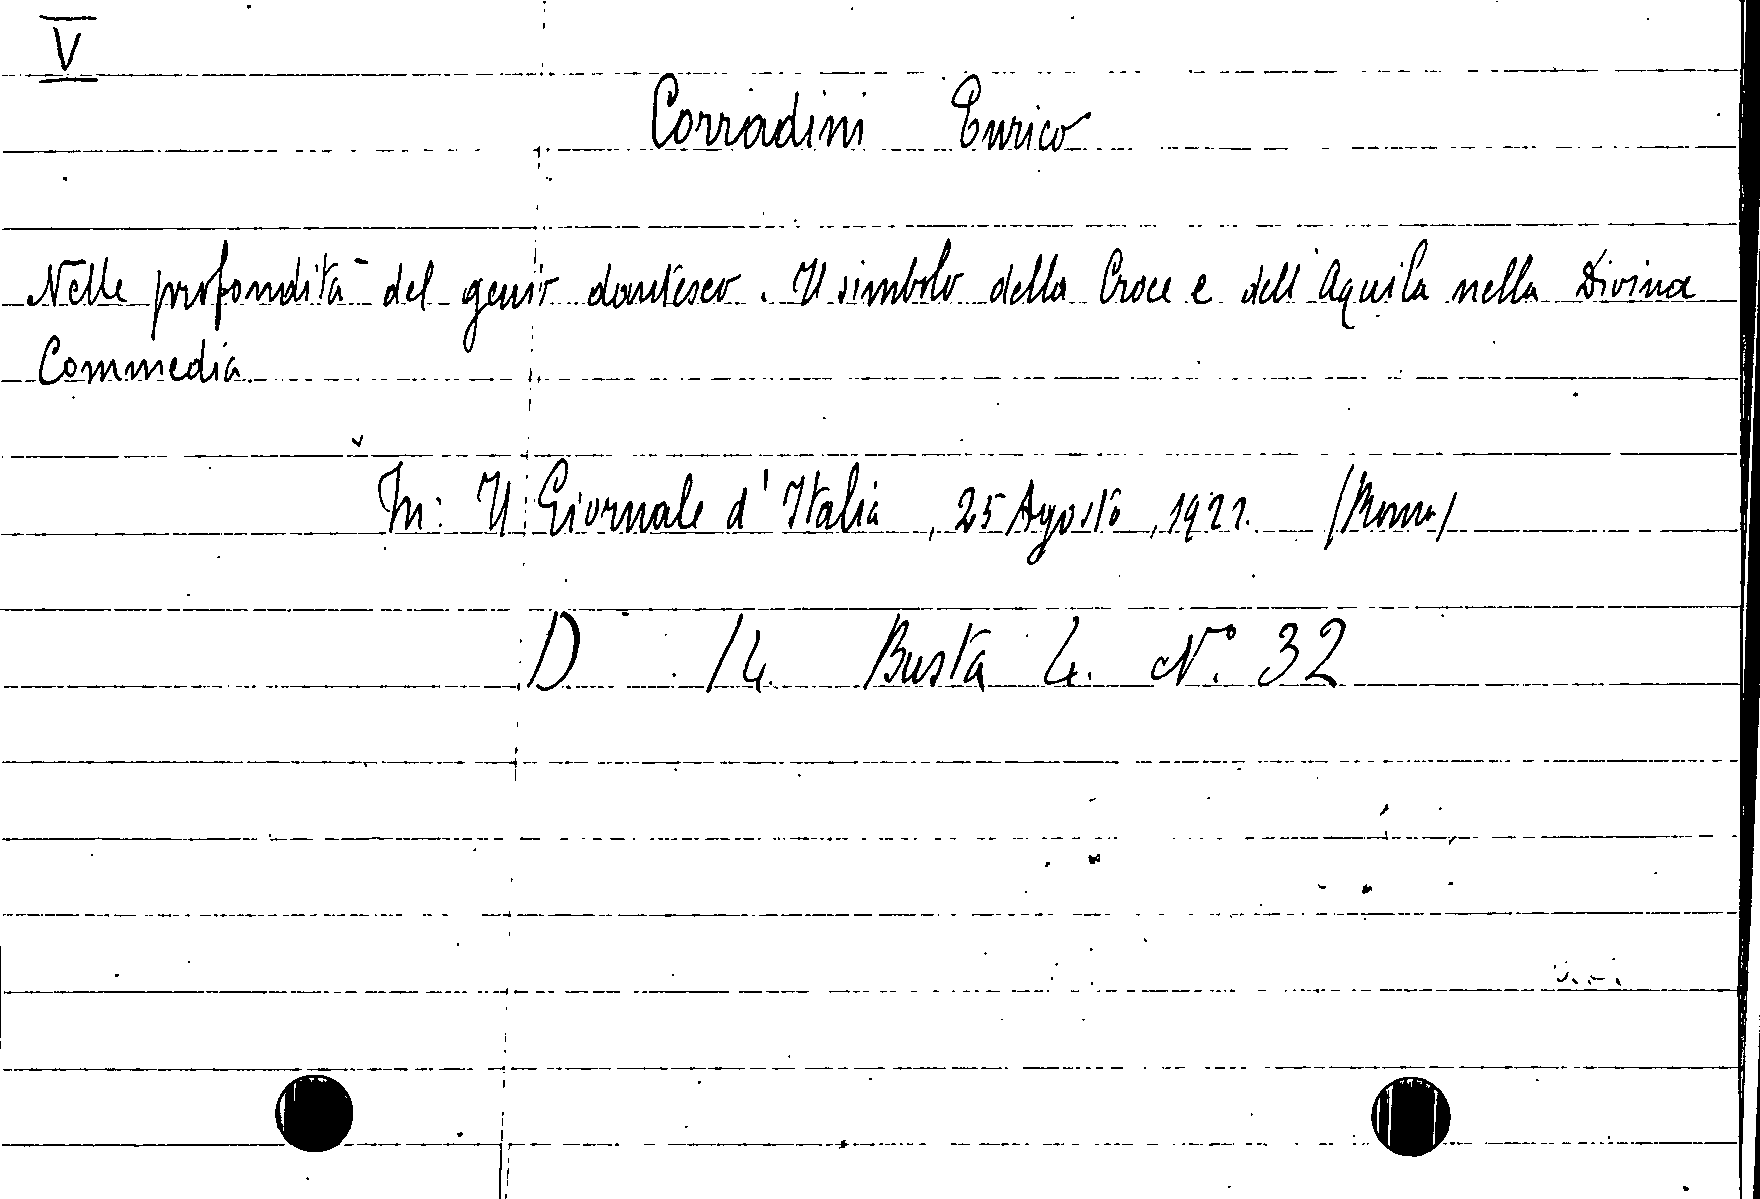 V
Corradini Enrico
Nelle profondità del genio dantesco. Il simbolo della Croce e dell'Aquila nella Divina
Commedia
In: Il Giornale d'Italia, 25 Agosto, 1921. (Roma)
D 14. Busta 4. N°. 32